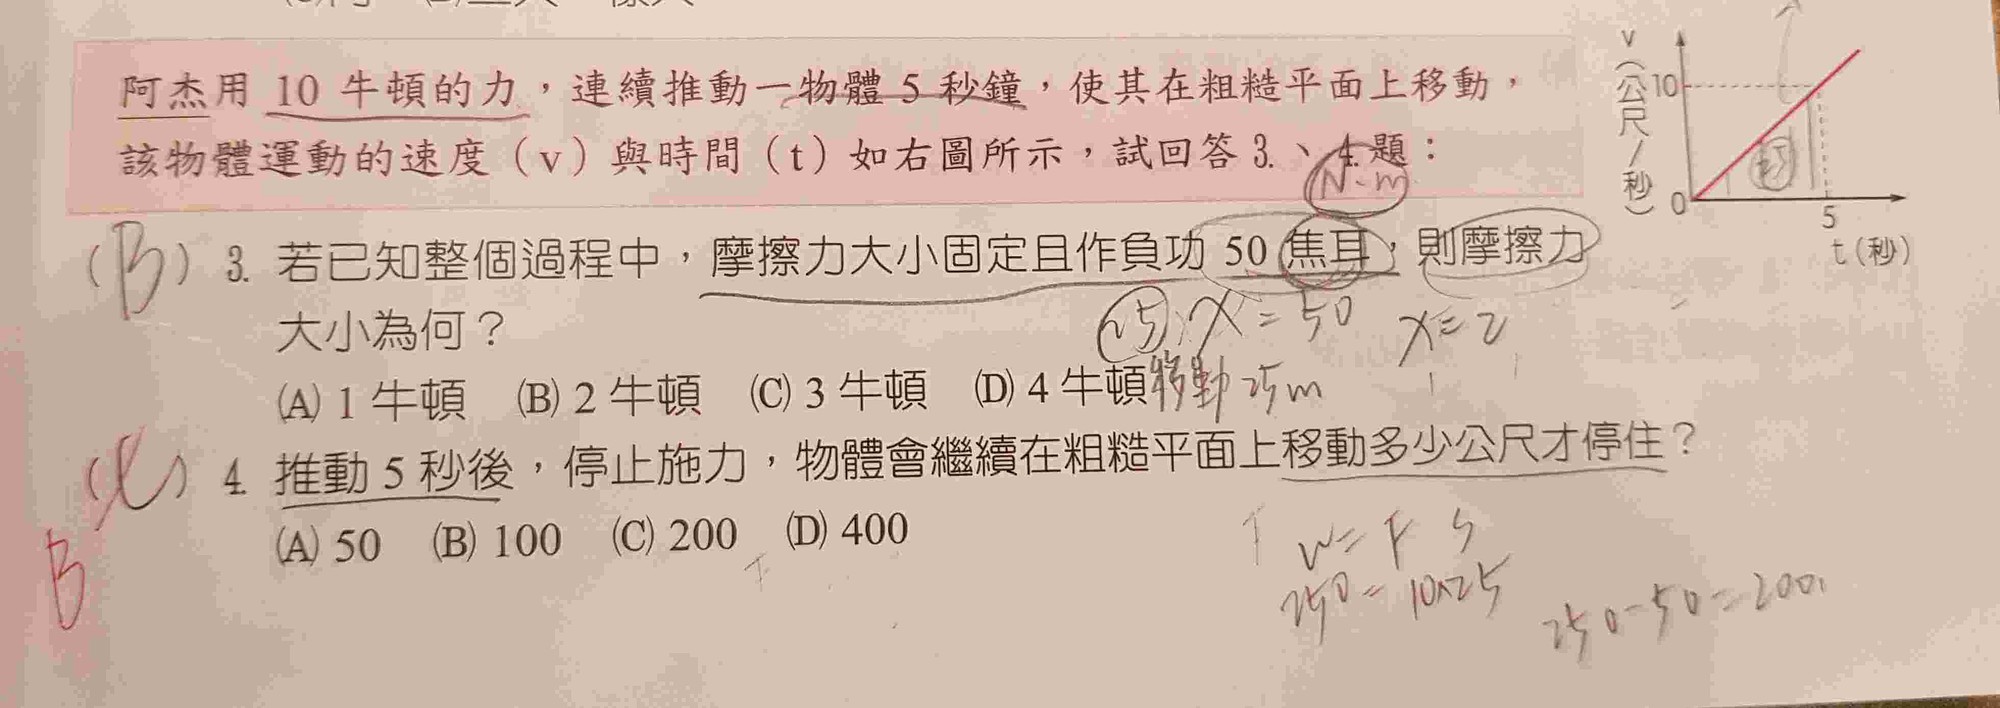 阿杰用 10 牛頓的力，連續推動一物體 5 秒鐘，使其在粗糙平面上移動，
該物體運動的速度（v）與時間（t）如右圖所示，試回答 3.、4.題：
N-m
v（公尺／秒）
10
0
5
t（秒）
25
（B）3. 若已知整個過程中，摩擦力大小固定且作負功 50 焦耳，則摩擦力
大小為何？
25 X = 50 X = 2
(A) 1 牛頓 (B) 2 牛頓 (C) 3 牛頓 (D) 4 牛頓 移動 25m
（C）4. 推動 5 秒後，停止施力，物體會繼續在粗糙平面上移動多少公尺才停住？
B
(A) 50 (B) 100 (C) 200 (D) 400
W = F S
250 = 10×25
250-50=200